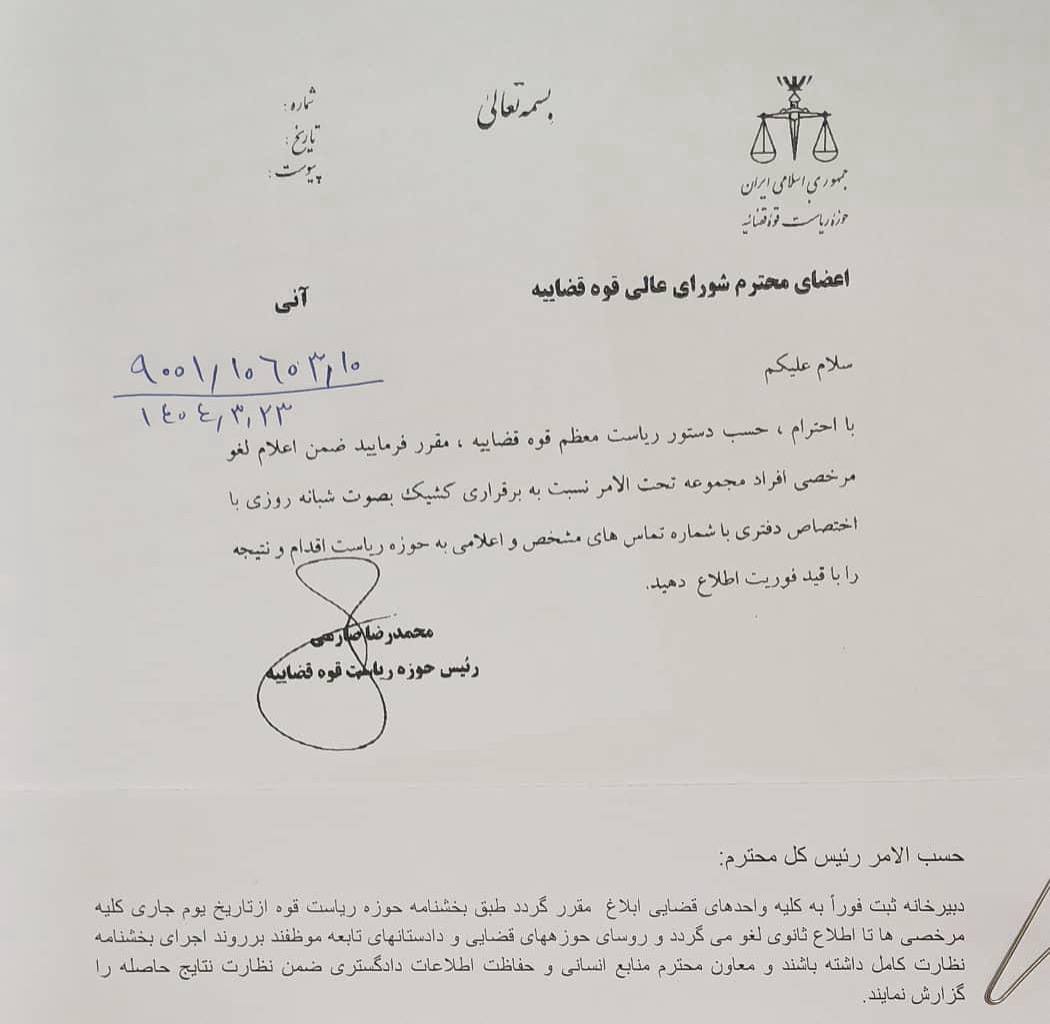 بسمه تعالی
جمهوری اسلامی ایران
حوزه ریاست قوه قضائیه
شماره :
تاریخ :
پیوست :
اعضای محترم شورای عالی قوه قضاییه
آنی
۹۰۰۱/۱۰۶۰۳/۱۰
۱٤۰٤/۳/۲۳
سلام علیکم
با احترام ، حسب دستور ریاست معظم قوه قضاییه ، مقرر فرمایید ضمن اعلام لغو
مرخصی افراد مجموعه تحت الامر نسبت به برقراری کشیک بصوت شبانه روزی با
اختصاص دفتری با شماره تماس های مشخص و اعلامی به حوزه ریاست اقدام و نتیجه
را با قید فوریت اطلاع دهید.
محمدرضا صارمی
رئیس حوزه ریاست قوه قضاییه
حسب الامر رئیس کل محترم:
دبیرخانه ثبت فوراً به کلیه واحدهای قضایی ابلاغ مقرر گردد طبق بخشنامه حوزه ریاست قوه ازتاریخ یوم جاری کلیه
مرخصی ها تا اطلاع ثانوی لغو می گردد و روسای حوزههای قضایی و دادستانهای تابعه موظفند برروند اجرای بخشنامه
نظارت کامل داشته باشند و معاون محترم منابع انسانی و حفاظت اطلاعات دادگستری ضمن نظارت نتایج حاصله را
گزارش نمایند.